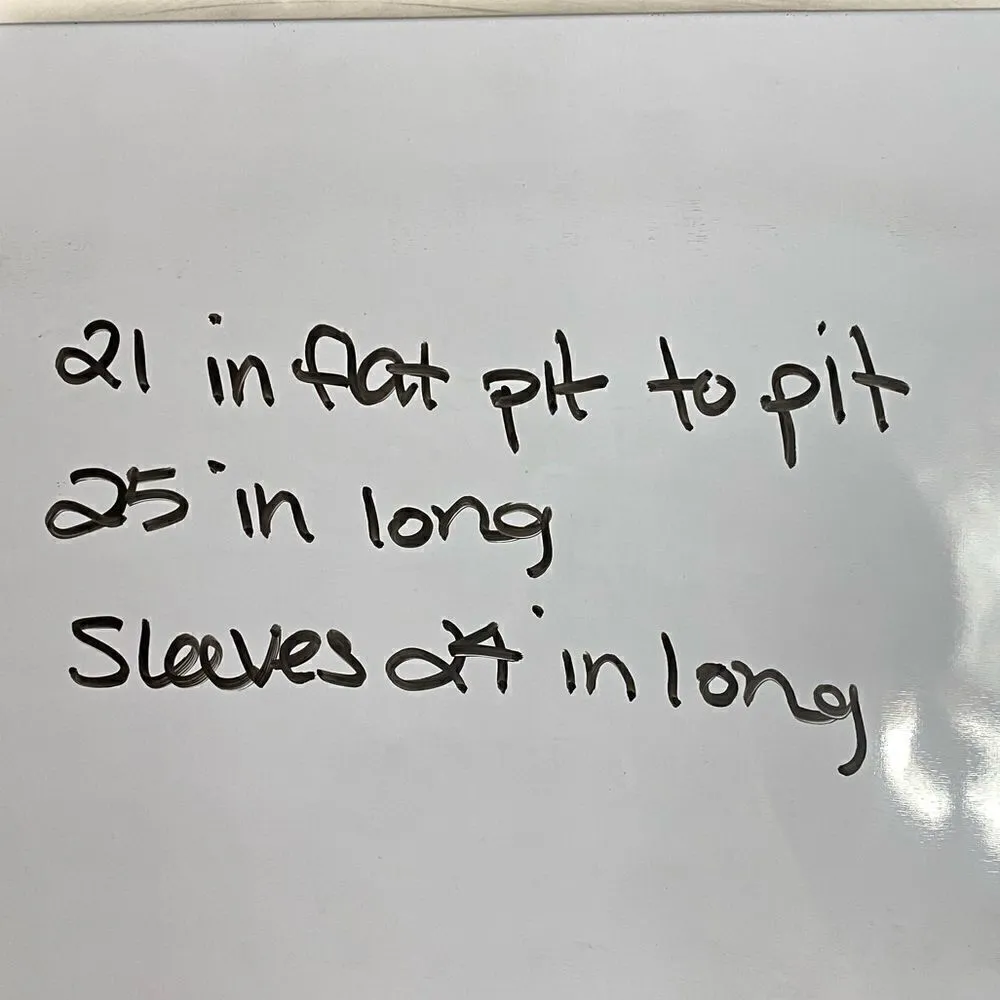 21 in flat pit to pit
25 in long
Sleeves 24 in long